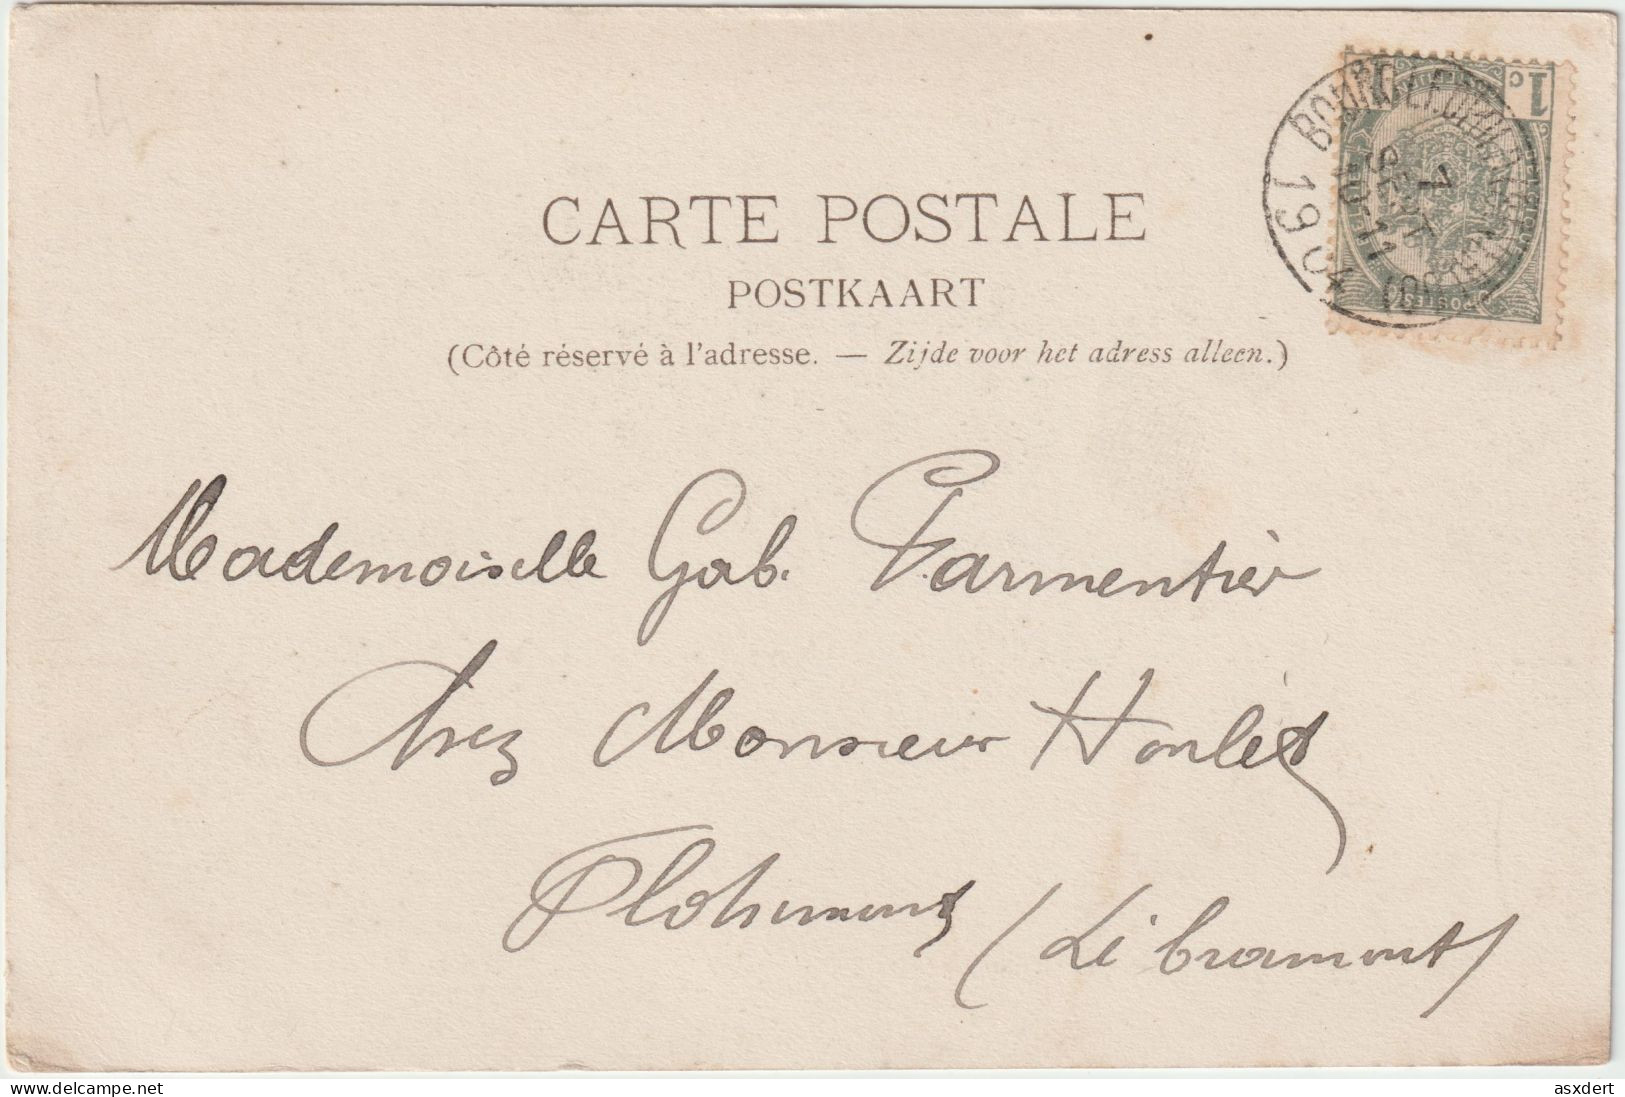 CARTE POSTALE
POSTKAART
(Côté réservé à l'adresse. — Zijde voor het adress alleen.)
Mademoiselle Gab. Parmentier
Chez Monsieur Houlet
Flohimont (Libramont)
1c
POSTES
SEPT
7
1904
asxdert
delcampe.net